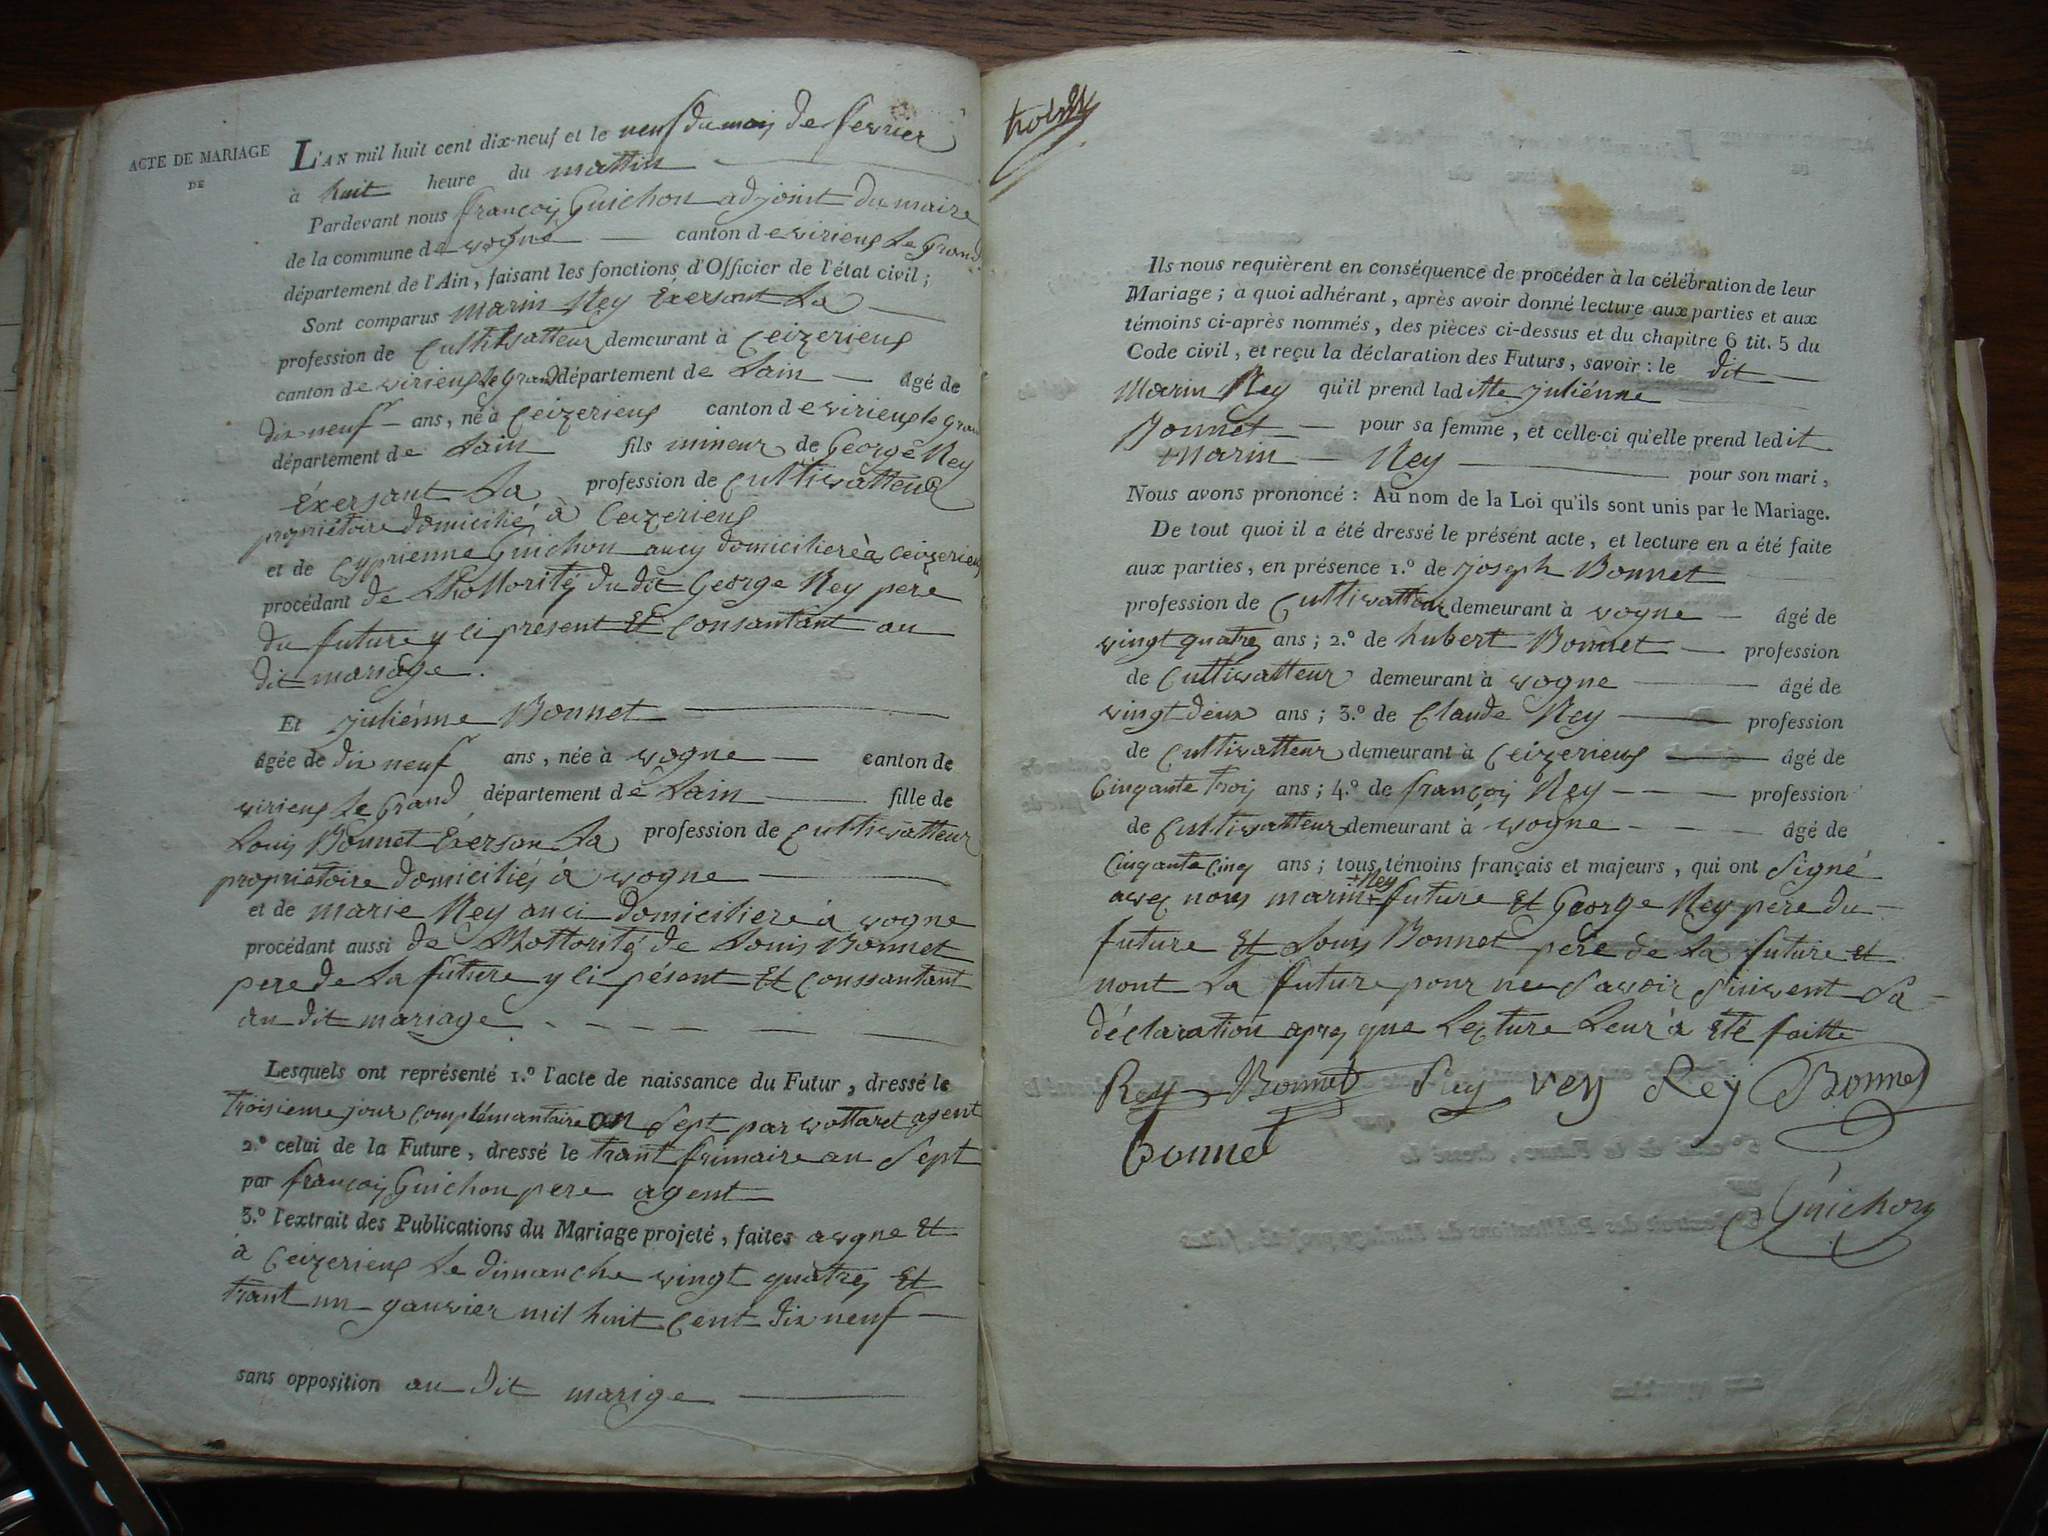 ACTE DE MARIAGE
DE
L'AN mil huit cent dix-neuf et le neuf du mois de fevrier
à huit heure du mattin
Pardevant nous françois Guichon adjoint du maire
de la commune de vogne canton de virieux Le Grand
département de l'Ain, faisant les fonctions d'Officier de l'état civil;
Sont comparus marin Rey Exersant La
profession de Cultivatteur demeurant à Ceizerieux
canton de virieux Le Grand département de Lain âgé de
dix neuf ans, né à Ceizerieux canton de virieux le gran
département de Lain fils mineur de George Rey
Éxersant La profession de Cultivatteur
propriétoire domicilié à Ceizerieux
et de Cyprienne Guichon aucy domicilierè à Ceizerieux
procédant de Lhottorité du dit George Rey pere
du future y ci présent Et Consantant au
dit mariage.
Et juliénne Bonnet
âgée de dix neuf ans, née à vogne canton de
virieux Le Grand département de Lain fille de
Louis Bonnet Éxerson La profession de Cultivatteur
propriétoire domiciliés à vogne
et de marie Rey auci domicilière à vogne
procédant aussi de Lhottorité de Louis Bonnet
pere de La future y ci pésent Et Conssantant
au dit mariage
Lesquels ont représenté 1.º l'acte de naissance du Futur, dressé le
troisieme jour Complémantaire an Sept par vottaret agent
2.º celui de la Future, dressé le trant frimaire an Sept
par françois Guichon pere agent
3.º l'extrait des Publications du Mariage projeté, faites avogne Et
à Ceizerieux Le dimanche vingt quatres Et
trant un ganvier mil huit Cent dix neuf
sans opposition au dit marige
Ils nous requièrent en conséquence de procéder à la célébration de leur
Mariage; à quoi adhérant, après avoir donné lecture aux parties et aux
témoins ci-après nommés, des pièces ci-dessus et du chapitre 6 tit. 5 du
Code civil, et reçu la déclaration des Futurs, savoir: le dit
Marin Rey qu'il prend laditte juliénne
Bonnet pour sa femme, et celle-ci qu'elle prend ledit
Marin Rey pour son mari,
Nous avons prononcé: Au nom de la Loi qu'ils sont unis par le Mariage.
De tout quoi il a été dressé le présént acte, et lecture en a été faite
aux parties, en présence 1.º de joseph Bonnet
profession de Cultivatteur demeurant à vogne âgé de
vingt quatre ans; 2.º de hubert Bonnet profession
de Cultivatteur demeurant à vogne âgé de
vingt deux ans; 3.º de Claude Rey profession
de Cultivatteur demeurant à Ceizerieux âgé de
Cinqante trois ans; 4.º de françois Rey profession
de Cultivatteur demeurant à vogne âgé de
Cinqante Cinq ans; tous témoins français et majeurs, qui ont Signé
+ Rey
avec nous marin + future Et George Rey pere du
future Et Louis Bonnet père de La future et
nont La future pour ne Savoir Suivent Sa
déclaration apres que Lecture Leur à Eté faitte
Rey Bonnet Rey rey Rey Bonnet
bonnet
Guichon